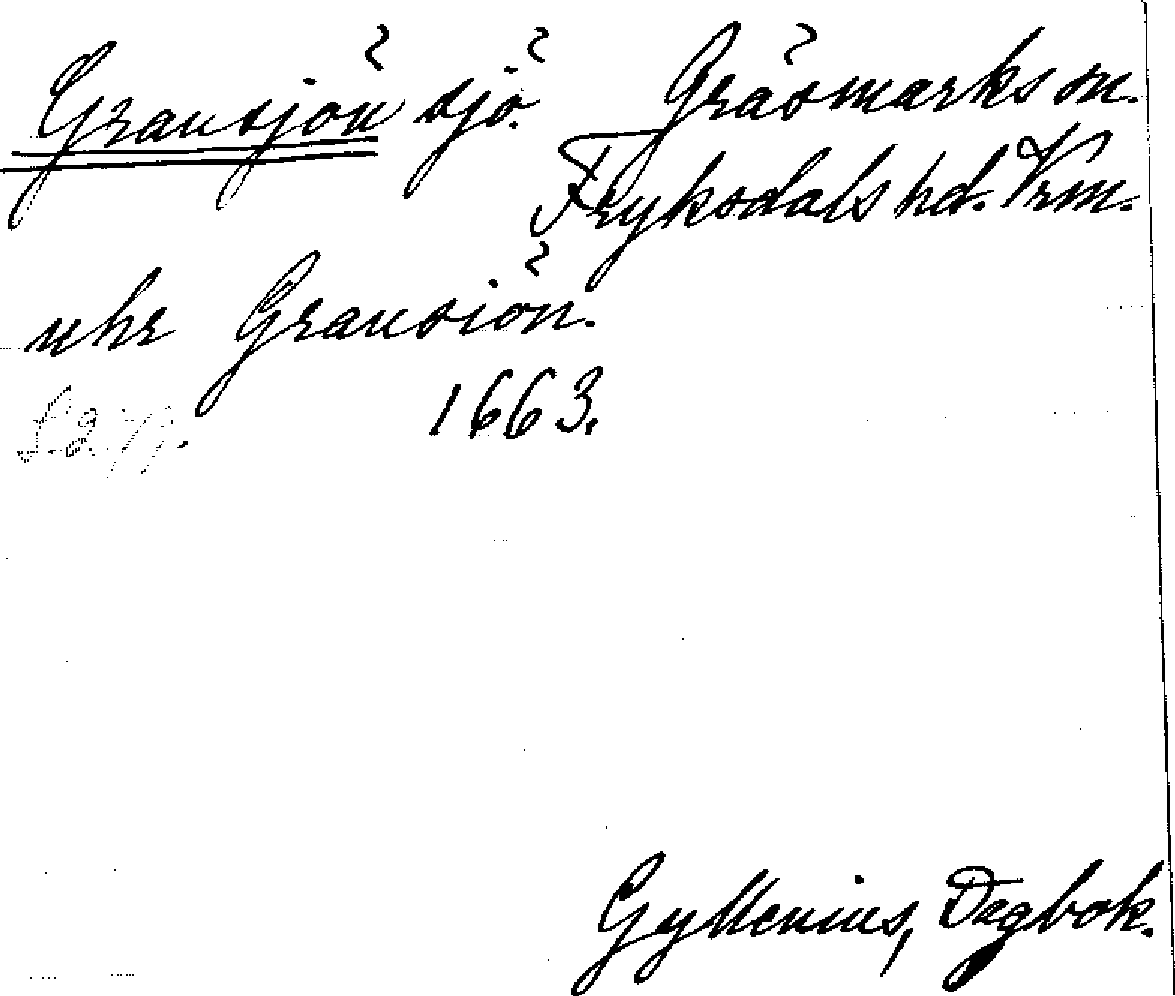 Gransjön sjö. Gräsmarks sn.
Fryksdals hd. Vrm.
uhr Gransiön.
1663.
Gyllenius, Dagbok.